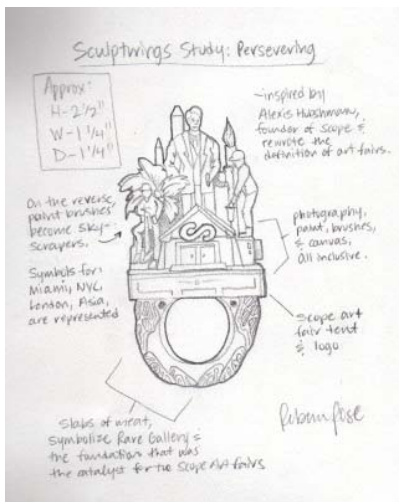 Sculptwrings Study: Persevering
Approx:
H-2½"
W-1¼"
D-1¼"
-inspired by
Alexis
founder of Scope &
rewrote the
definition of art fairs.
On the reverse,
paint brushes
become sky-
scrapers.
Symbols for:
Miami, NYC,
London, Asia,
are represented
photography,
paint, brushes,
& canvas,
all inclusive.
Scope art
fair tent
& logo
Slabs of meat,
symbolize Rare Gallery &
the foundation that was
the catalyst for the Scope Art fairs